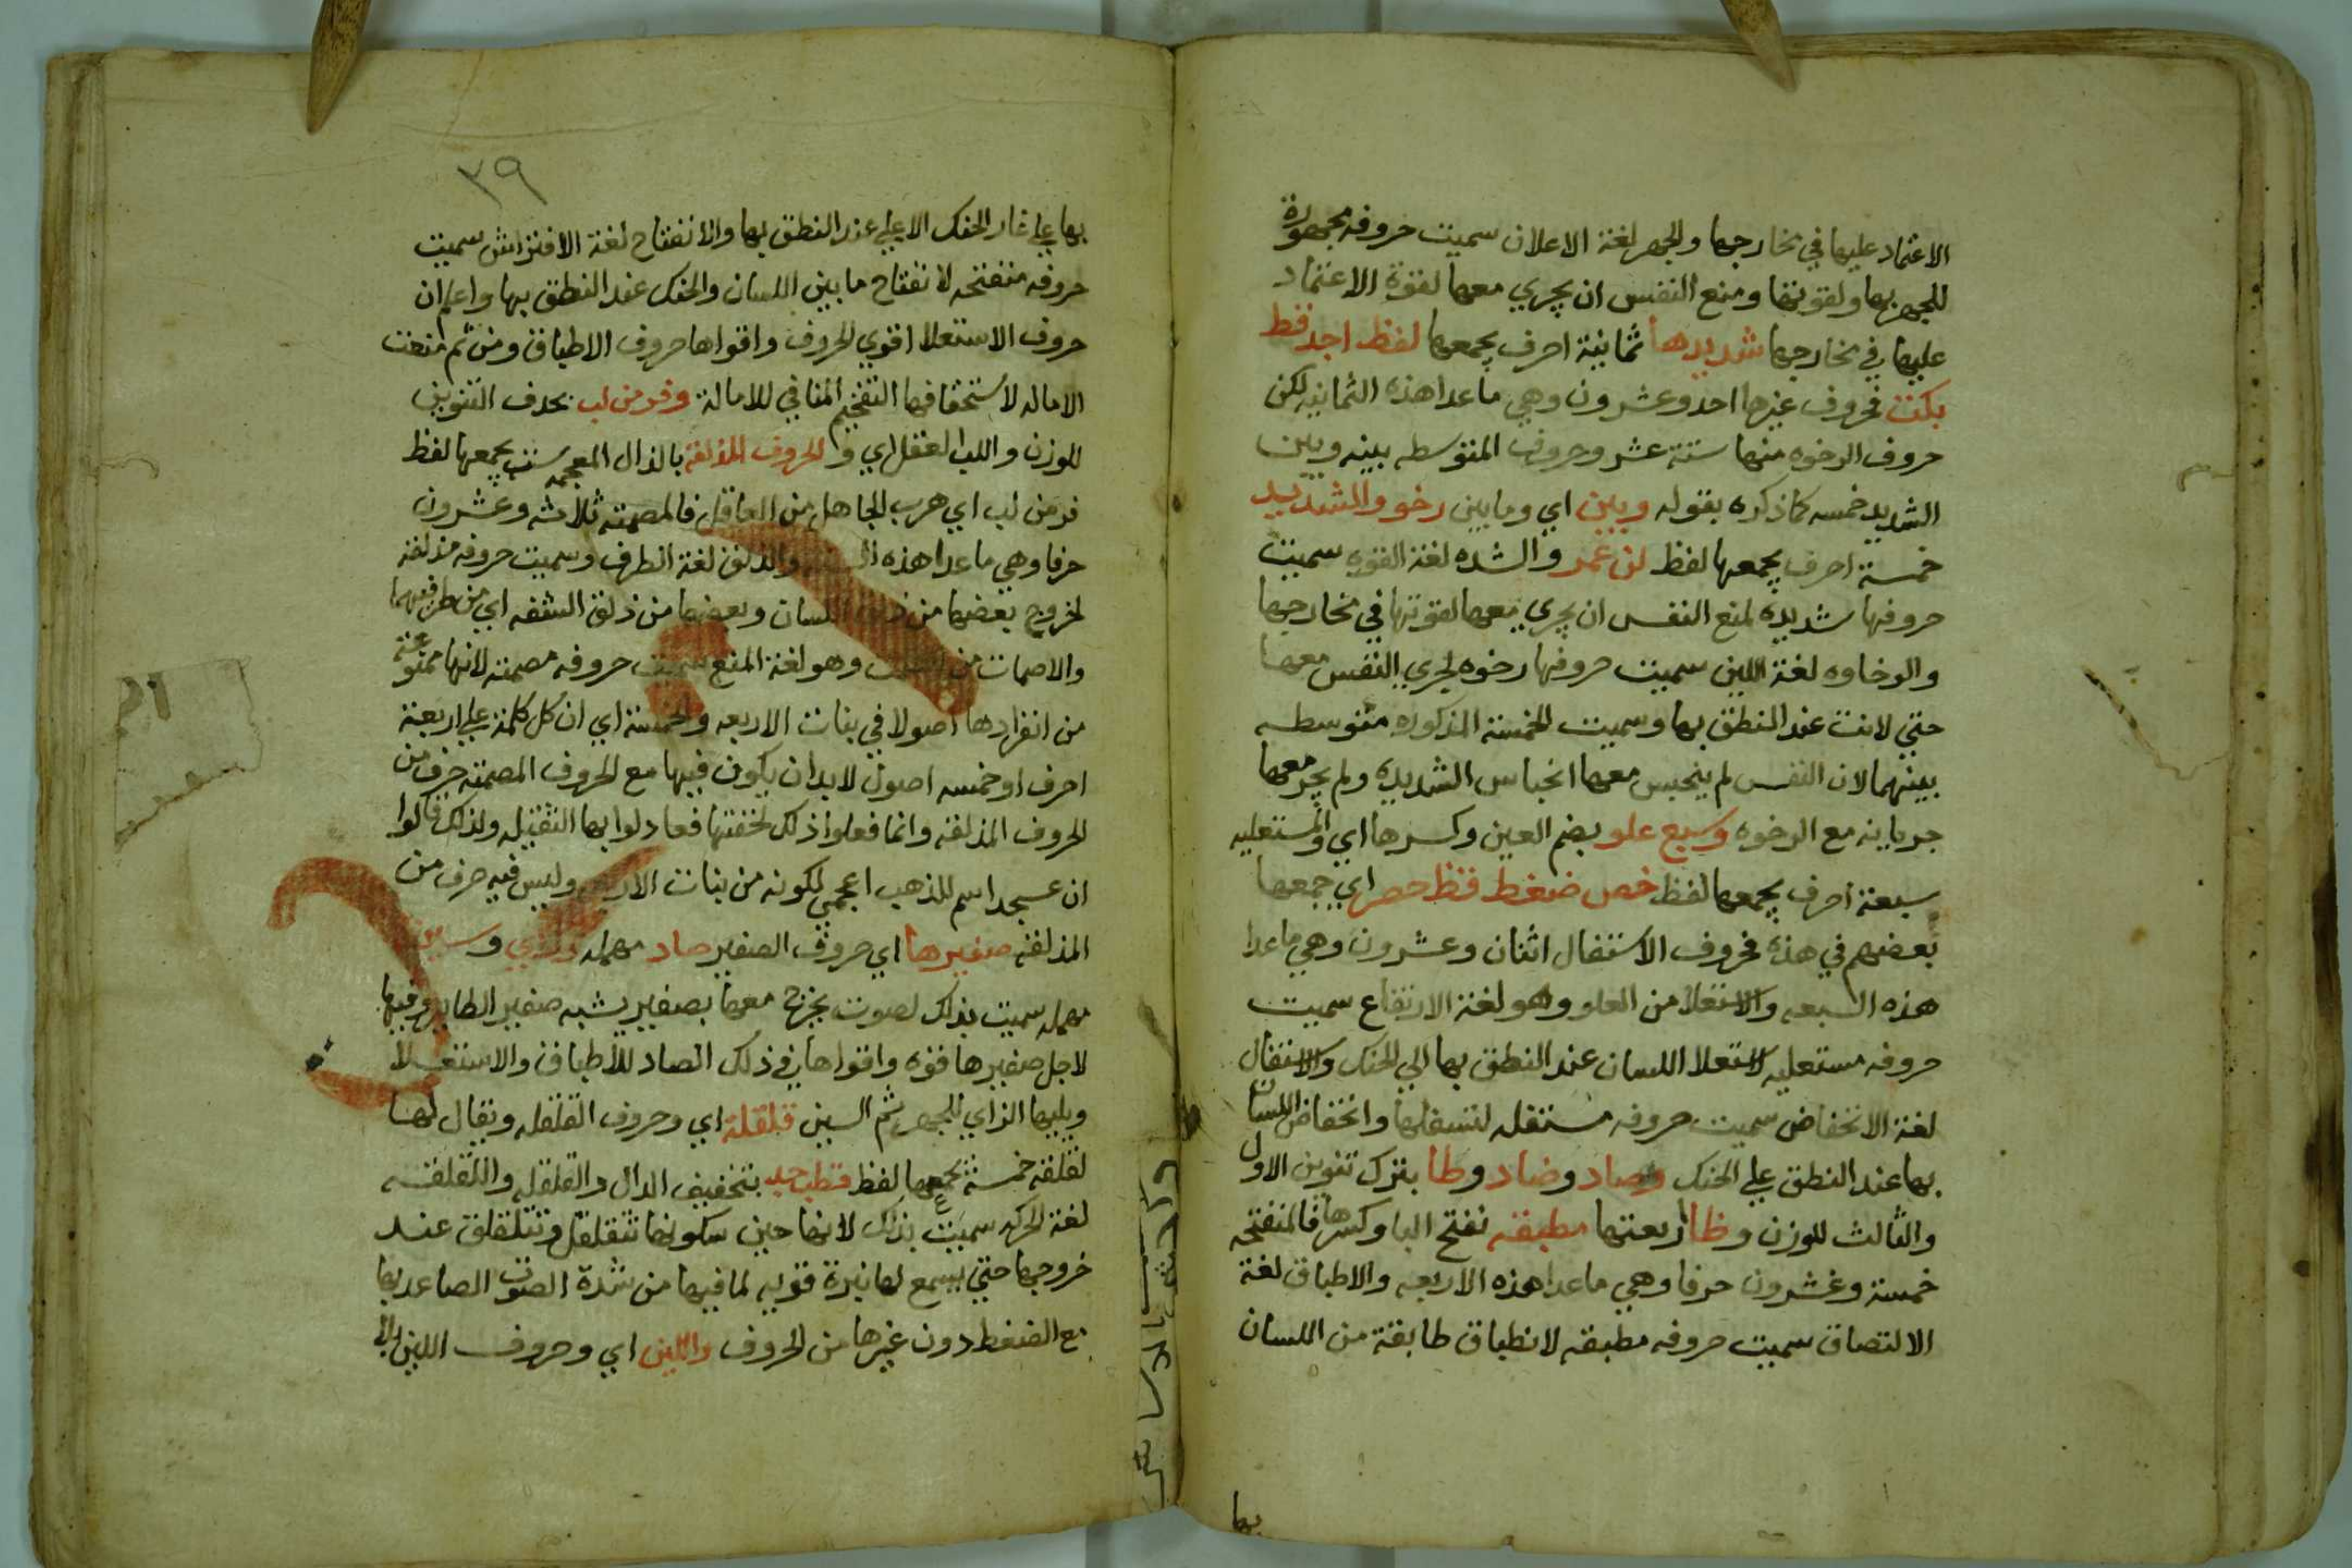 الاعتماد عليها في مخارجها والجهر لغة الاعلان سميت حروفه مجهورة
للجهر بها ولقوتها ومنع النفس ان يجري معها لقوة الاعتماد
عليها في مخارجها شديدها ثمانية احرف يجمعها لفظ اجد قط
بكت فحروف غيرها احد وعشرون وهي ما عدا هذه الثمانيه لكن
حروف الرخوه منها ستة عشر وحروف المتوسطه بينه وبين
الشديد خمسه كما ذكره بقوله وبين اي وما بين رخو والشديد
خمسة احرف يجمعها لفظ لن عمر والشده لغة القوه سميت
حروفها شديده لمنع النفس ان يجري معها لقوتها في مخارجها
والرخاوه لغة اللين سميت حروفها رخوه لجري النفس معها
حتي لانت عند النطق بها وسميت الخمسة المذكوره متوسطه
بينهما لان النفس لم ينحبس معها انحباس الشديده ولم يجر معها
جريانه مع الرخوه وسبع علو بضم العين وكسرها اي والمستعليه
سبعة احرف يجمعها لفظ خص ضغط قظ حصر اي جمعها
بعضهم في هذه فحروف الاستفال اثنان وعشرون وهي ما عدا
هذه السبعه والاستعلا من العلو وهو لغة الارتفاع سميت
حروفه مستعليه لاستعلا اللسان عند النطق بها الي الحنك والاستفال
لغة الانخفاض سميت حروفه مستفله لتسفلها وانخفاض اللسان
بها عند النطق علي الحنك وصاد وضاد وطا بترك تنوين الاول
والثالث للوزن وظا اربعتها مطبقه بفتح البا وكسرها فالمنفتحه
خمسة وعشرون حرفا وهي ما عدا هذه الاربعه والاطباق لغة
الالتصاق سميت حروفه مطبقه لانطباق طابقة من اللسان
بها
٣٩
بها علي غار الحنك الاعلي عند النطق بها والانفتاح لغة الافتراش سميت
حروفه منفتحه لانفتاح ما بين اللسان والحنك عند النطق بها واعلم ان
حروف الاستعلا اقوي الحروف واقواها حروف الاطباق ومن ثم منعت
الاماله لاستحقاقها التفخيم المنافي للامالة وفر من لب بحذف التنوين
للوزن واللب العقل اي والحروف المذلقة بالذال المعجمه ست يجمعها لفظ
فر من لب اي هرب الجاهل من العاقل فالمصمته ثلاثه وعشرون
حرفا وهي ما عدا هذه الستة والذلق لغة الطرف وسميت حروفه مذلقة
لخروج بعضها من ذلق اللسان وبعضها من ذلق الشفه اي من طرفيهما
والاصمات من الصمت وهو لغة المنع سميت حروفه مصمته لانها ممنوعة
من انفرادها اصولا في بنات الاربعه والخمسة اي ان كل كلمة علي اربعة
احرف او خمسه اصول لا بد ان يكون فيها مع الحروف المصمته حرف من
الحروف المذلقه وانما فعلوا ذلك لخفتها فعادلوا بها الثقيله ولذلك قالوا
ان عسجد اسم للذهب اعجمي لكونه من بنات الاربعه وليس فيه حرف من
المذلقه صفيرها اي حروف الصفير صاد مهمله وزاي وسين
مهمله سميت بذلك لصوت يخرج معها بصفير يشبه صفير الطاير وفيها
لاجل صفيرها قوه واقواها في ذلك الصاد للاطباق والاستعلا
ويليها الزاي للجهر ثم السين قلقلة اي وحروف القلقله ويقال لها
لقلقه خمسة يجمعها لفظ قطب جد بتخفيف الدال والقلقله واللقلقه
لغة الحركه سميت بذلك لانها حين سكونها تتقلقل وتتلقلق عند
خروجها حتي يسمع لها نبرة قويه لما فيها من شدة الصوت الصاعد بها
مع الضغط دون غيرها من الحروف واللين اي وحروف اللين بلا